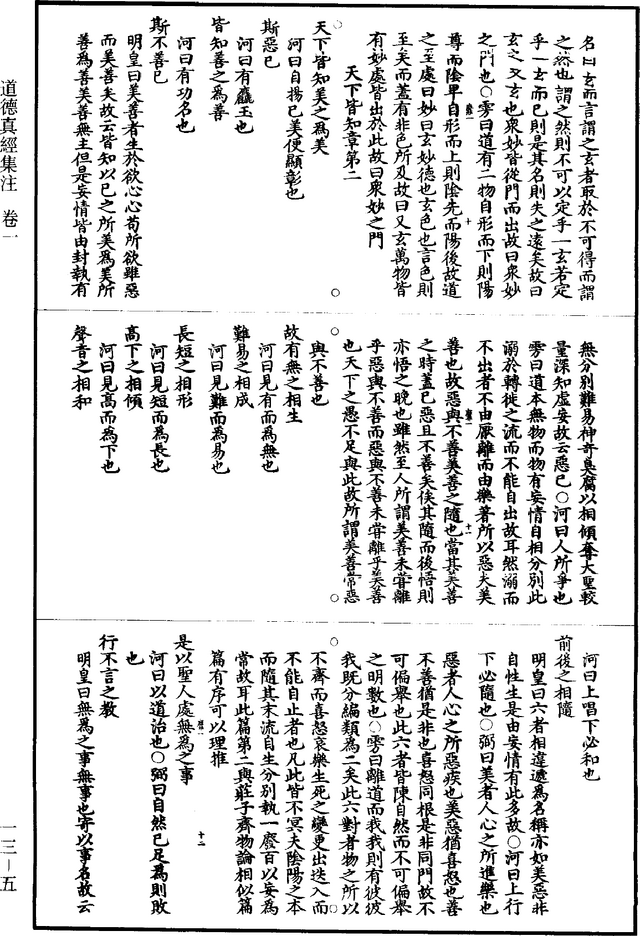 名曰玄而言謂之玄者取於不可得而謂
之然也謂之然則不可以定乎一玄若定
乎一玄而已則是其名則失之遠矣故曰
玄之又玄也衆妙皆從門而出故曰衆妙
之門也○雱曰道有二物自形而下則陽
尊而陰卑自形而上則陰先而陽後故道
之至處曰妙曰玄妙德也玄色也言色則
至矣而蓋有非色所及故曰又玄萬物皆
有妙處皆出於此故曰衆妙之門
天下皆知章第二
天下皆知美之爲美
河曰自揚已美使顯彰也
斯惡已
河曰有危亡也
皆知善之爲善
河曰有功名也
斯不善已
明皇曰美善者生於欲心心苟所欲雖惡
而美善矣故云皆知以己之所美爲美所
善爲善美善無主但是妄情皆由封執有
無分別難易神奇臭腐以相傾奪大聖較
量深知虛妄故云惡已○河曰人所爭也
雱曰道本無物而物有妄情自相分別此
溺於轉徙之流而不能自出故耳然溺而
不出者不由厭離而由樂著所以惡夫美
善也故惡與不善美善之隨也當其美善
之時蓋已惡且不善矣俟其隨而後悟則
亦悟之晚也雖然至人所謂美善未嘗離
乎惡與不善而惡與不善未嘗離乎美善
也天下之愚不足與此故所謂美善常惡
與不善也
故有無之相生
河曰見有而爲無也
難易之相成
河曰見難而爲易也
長短之相形
河曰見短而爲長也
高下之相傾
河曰見高而爲下也
聲音之相和
河曰上唱下必和也
前後之相隨
明皇曰六者相違遞爲名稱亦如美惡非
自性生是由妄情有此多故○河曰上行
下必隨也○弼曰美者人心之所進樂也
惡者人心之所惡疾也美惡猶喜怒也善
不善猶是非也喜怒同根是非同門故不
可偏舉也此六者皆陳自然而不可偏舉
之明數也○雱曰離道而我我則有彼彼
我既分編類爲二矣此六對者物之所以
不齊而喜怒哀樂生死之變更出迭入而
不能自止者也凡此皆不冥夫陰陽之本
而隨其末流自生分別執一廢百以妄爲
常故耳此篇第二與莊子齊物論相似篇
篇有序可以理推
是以聖人處無爲之事
河曰以道治也○弼曰自然已足爲則敗
也
行不言之教
明皇曰無爲之事無事也寄以事名故云
道德真經集注 卷一
一三－五